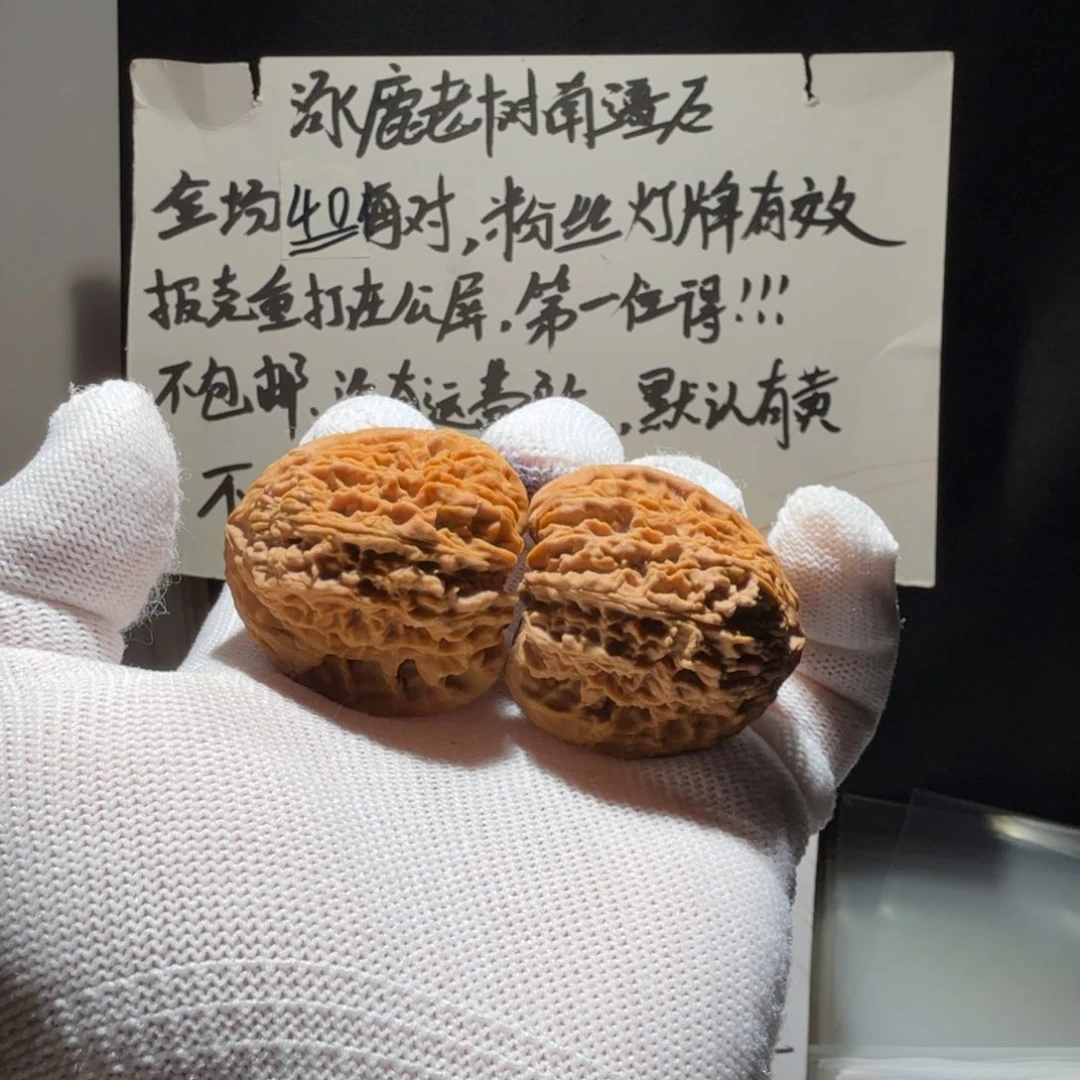 涿鹿老树南疆石
全场40每对,粉丝灯牌有效
报克重打在公屏.第一位得!!!
不包邮.没有运费险,默认有黄
不